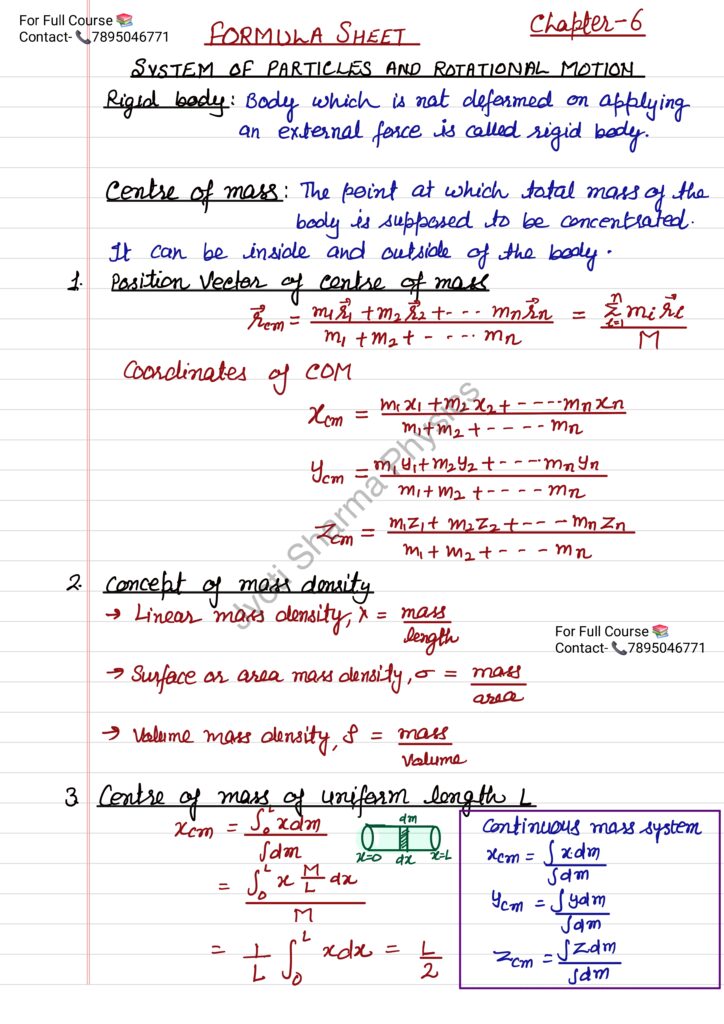 For Full Course 📚
Contact- 📞7895046771
FORMULA SHEET
Chapter-6
SYSTEM OF PARTICLES AND ROTATIONAL MOTION
Rigid body: Body which is not deformed on applying
an external force is called rigid body.
Centre of mass: The point at which total mass of the
body is supposed to be concentrated.
It can be inside and outside of the body.
1. Position Vector of centre of mass
r⃗cm = (m1r⃗1 + m2r⃗2 + --- mnr⃗n) / (m1 + m2 + ---- mn) = (Σ i=1 n mi r⃗i) / M
Coordinates of COM
xcm = (m1x1 + m2x2 + ----- mnxn) / (m1 + m2 + ---- mn)
ycm = (m1y1 + m2y2 + ----- mnyn) / (m1 + m2 + ---- mn)
zcm = (m1z1 + m2z2 + --- - mnzn) / (m1 + m2 + --- - mn)
Jyoti Sharma Physics
2. Concept of mass density
→ Linear mass density, λ = mass / length
For Full Course 📚
Contact- 📞7895046771
→ Surface or area mass density, σ = mass / area
→ Volume mass density, ρ = mass / volume
3. Centre of mass of uniform length L
xcm = ∫₀ᴸ xdm / ∫dm
dm
x=0 dx x=L
= ∫₀ᴸ x M/L dx / M
= 1/L ∫₀ᴸ xdx = L/2
Continuous mass system
xcm = ∫xdm / ∫dm
ycm = ∫ydm / ∫dm
zcm = ∫zdm / ∫dm